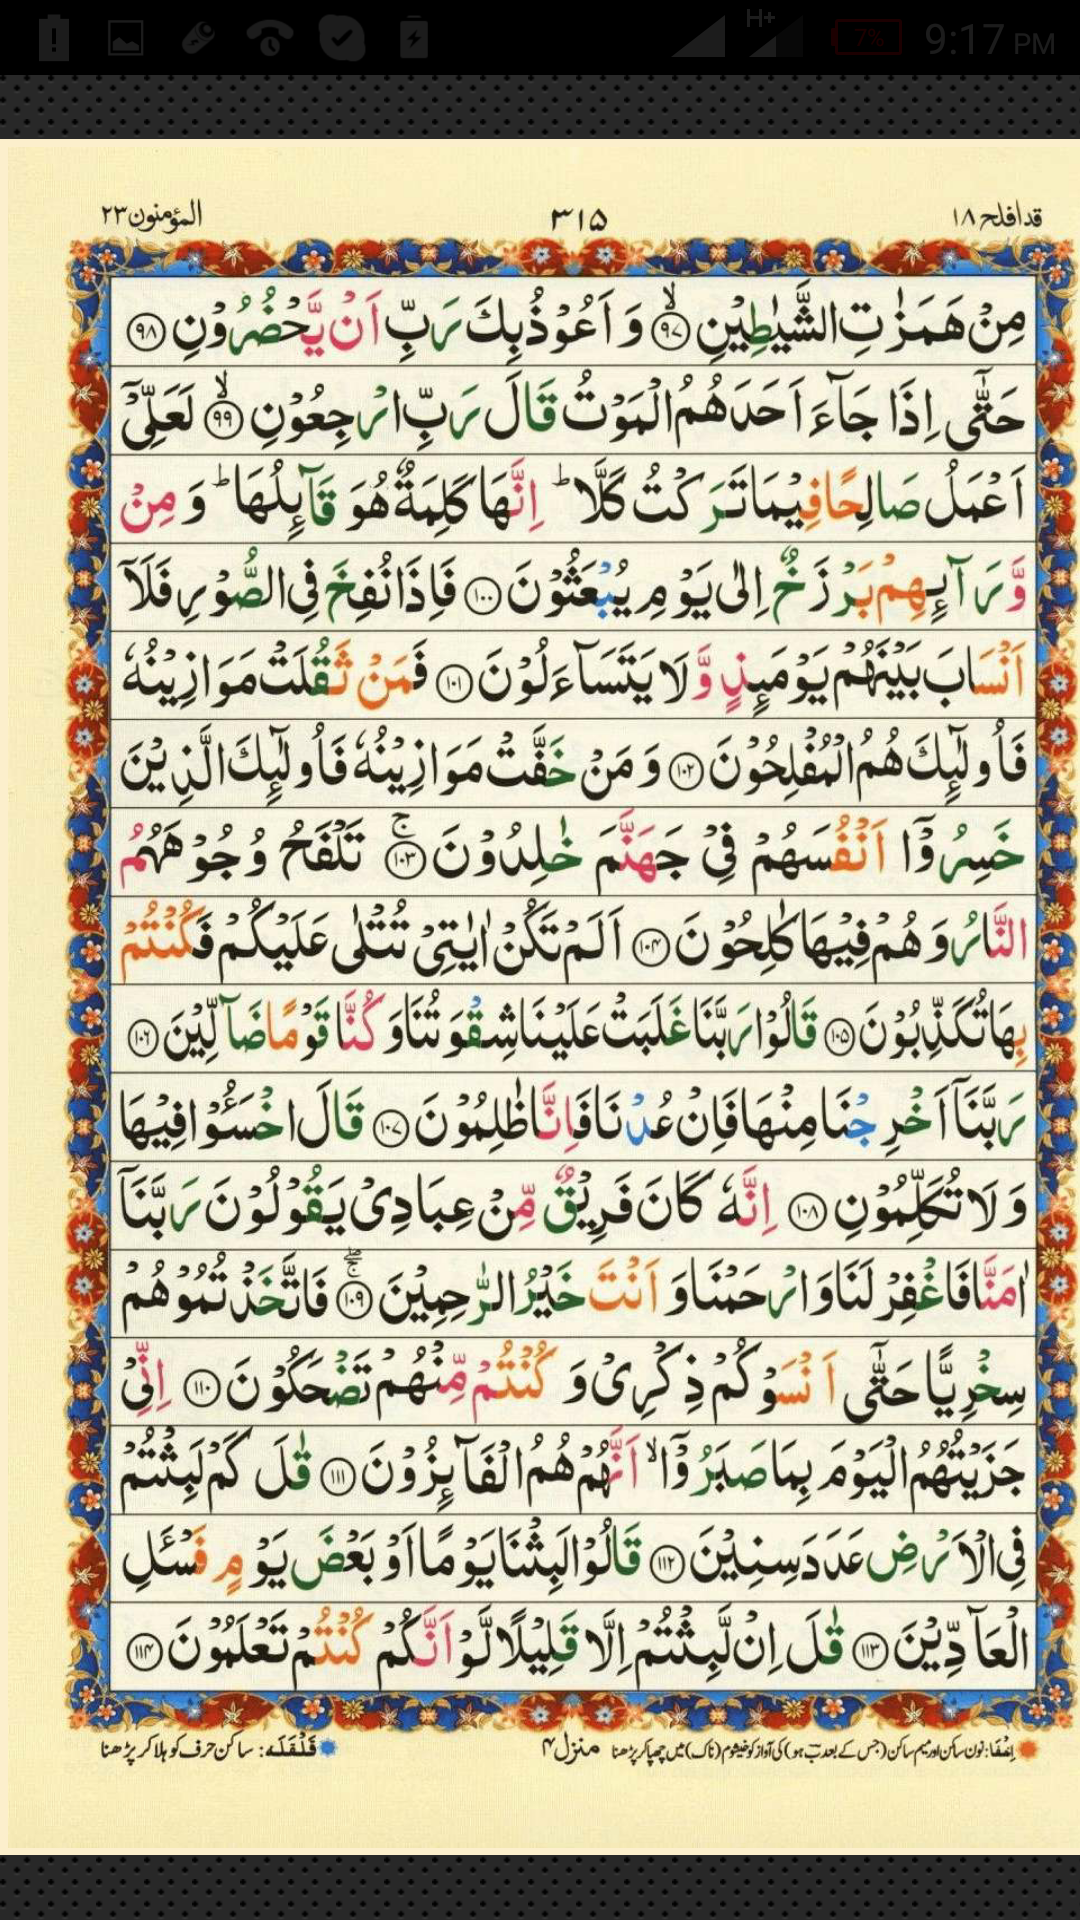 H+ 7% 9:17 PM
قد افلح ۱۸ ۳۱۵ المؤمنون ۲۳
مِنْ هَمَزٰتِ الشَّيٰطِيْنِ ۙ﴿۹۷﴾ وَ اَعُوْذُ بِكَ رَبِّ اَنْ يَّحْضُرُوْنِ ﴿۹۸﴾
حَتّٰۤى اِذَا جَآءَ اَحَدَهُمُ الْمَوْتُ قَالَ رَبِّ ارْجِعُوْنِ ۙ﴿۹۹﴾ لَعَلِّيْۤ
اَعْمَلُ صَالِحًا فِيْمَا تَرَكْتُ كَلَّا ؕ اِنَّهَا كَلِمَةٌ هُوَ قَآىِٕلُهَا ؕ وَ مِنْ
وَّرَآىِٕهِمْ بَرْزَخٌ اِلٰى يَوْمِ يُبْعَثُوْنَ ﴿۱۰۰﴾ فَاِذَا نُفِخَ فِى الصُّوْرِ فَلَاۤ
اَنْسَابَ بَيْنَهُمْ يَوْمَىِٕذٍ وَّ لَا يَتَسَآءَلُوْنَ ﴿۱۰۱﴾ فَمَنْ ثَقُلَتْ مَوَازِيْنُهٗ
فَاُولٰٓىِٕكَ هُمُ الْمُفْلِحُوْنَ ﴿۱۰۲﴾ وَ مَنْ خَفَّتْ مَوَازِيْنُهٗ فَاُولٰٓىِٕكَ الَّذِيْنَ
خَسِرُوْۤا اَنْفُسَهُمْ فِيْ جَهَنَّمَ خٰلِدُوْنَ ۚ﴿۱۰۳﴾ تَلْفَحُ وُجُوْهَهُمُ
النَّارُ وَ هُمْ فِيْهَا كٰلِحُوْنَ ﴿۱۰۴﴾ اَلَمْ تَكُنْ اٰيٰتِيْ تُتْلٰى عَلَيْكُمْ فَكُنْتُمْ
بِهَا تُكَذِّبُوْنَ ﴿۱۰۵﴾ قَالُوْا رَبَّنَا غَلَبَتْ عَلَيْنَا شِقْوَتُنَا وَ كُنَّا قَوْمًا ضَآلِّيْنَ ﴿۱۰۶﴾
رَبَّنَاۤ اَخْرِجْنَا مِنْهَا فَاِنْ عُدْنَا فَاِنَّا ظٰلِمُوْنَ ﴿۱۰۷﴾ قَالَ اخْسَـُٔوْا فِيْهَا
وَ لَا تُكَلِّمُوْنِ ﴿۱۰۸﴾ اِنَّهٗ كَانَ فَرِيْقٌ مِّنْ عِبَادِيْ يَقُوْلُوْنَ رَبَّنَاۤ
اٰمَنَّا فَاغْفِرْ لَنَا وَ ارْحَمْنَا وَ اَنْتَ خَيْرُ الرّٰحِمِيْنَ ۖۚ﴿۱۰۹﴾ فَاتَّخَذْتُمُوْهُمْ
سِخْرِيًّا حَتّٰۤى اَنْسَوْكُمْ ذِكْرِيْ وَ كُنْتُمْ مِّنْهُمْ تَضْحَكُوْنَ ﴿۱۱۰﴾ اِنِّيْ
جَزَيْتُهُمُ الْيَوْمَ بِمَا صَبَرُوْۤا ۙ اَنَّهُمْ هُمُ الْفَآىِٕزُوْنَ ﴿۱۱۱﴾ قٰلَ كَمْ لَبِثْتُمْ
فِى الْاَرْضِ عَدَدَ سِنِيْنَ ﴿۱۱۲﴾ قَالُوْا لَبِثْنَا يَوْمًا اَوْ بَعْضَ يَوْمٍ فَسْـَٔلِ
الْعَآدِّيْنَ ﴿۱۱۳﴾ قٰلَ اِنْ لَّبِثْتُمْ اِلَّا قَلِيْلًا لَّوْ اَنَّكُمْ كُنْتُمْ تَعْلَمُوْنَ ﴿۱۱۴﴾
اِخْفَا: نون ساکن اور میم ساکن (جس کے بعد ب ہو) کی آواز کو خیشوم (ناک) میں چھپا کر پڑھنا منزل ۴ قَلْقَلَه: ساکن حرف کو ہلا کر پڑھنا